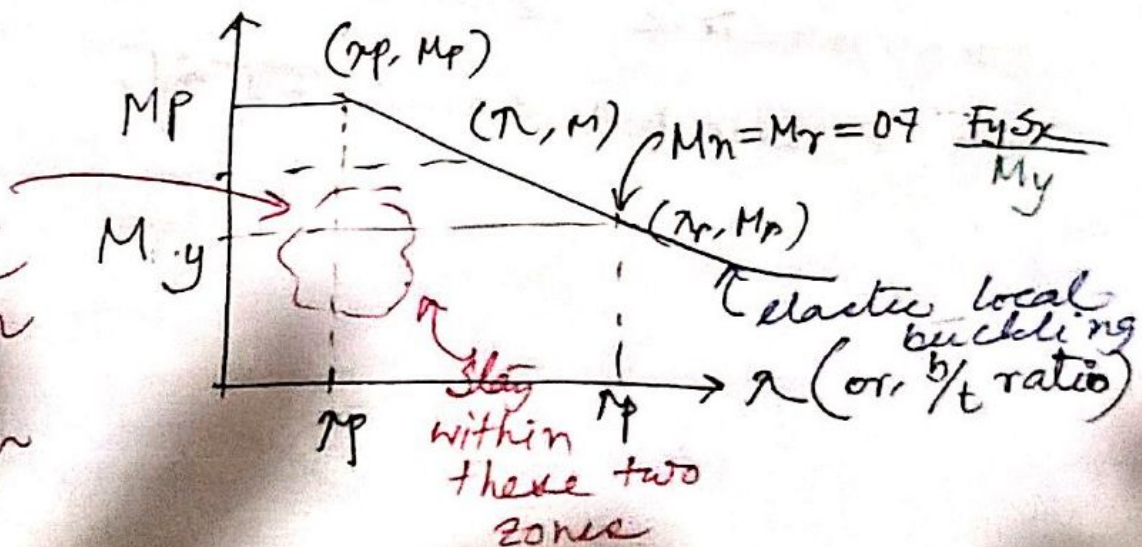 (λp, Mp)
Mp
(λ, M)
Mn = Mr = 07 FySx
My
M.y
(λr, Mr)
elastic local
buckling
λ (or, b/t ratio)
λp
λr
Stay
within
these two
zones